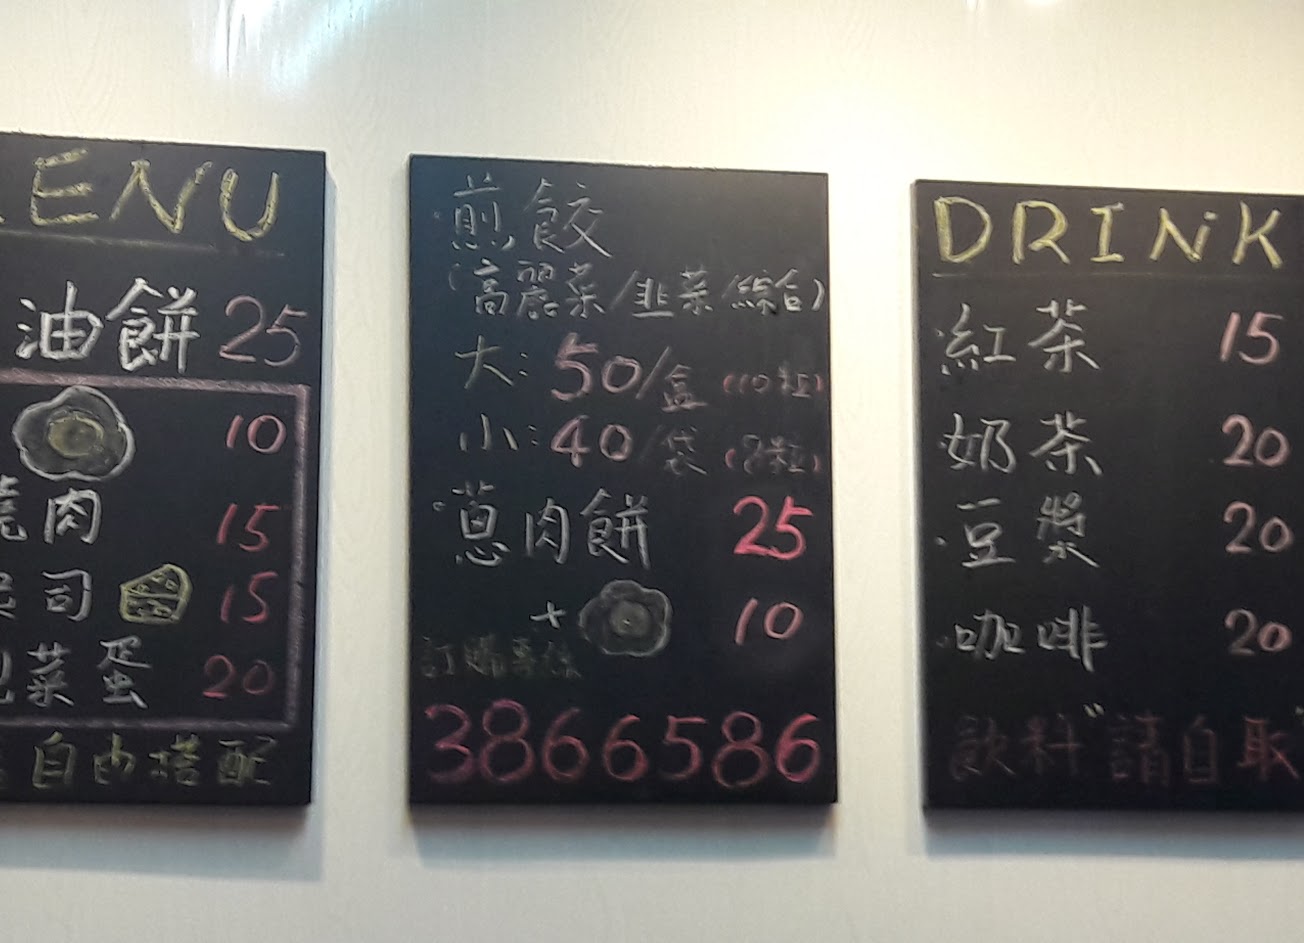 ENU
油餅 25
10
燒肉 15
司 15
菜蛋 20
自由搭配
煎餃
(高麗菜/韭菜/綜合)
大:50/盒 (10粒)
小:40/袋 (8粒)
蔥肉餅 25
+ 10
訂購專線
3866586
DRINK
紅茶 15
奶茶 20
豆漿 20
咖啡 20
飲料"請自取"